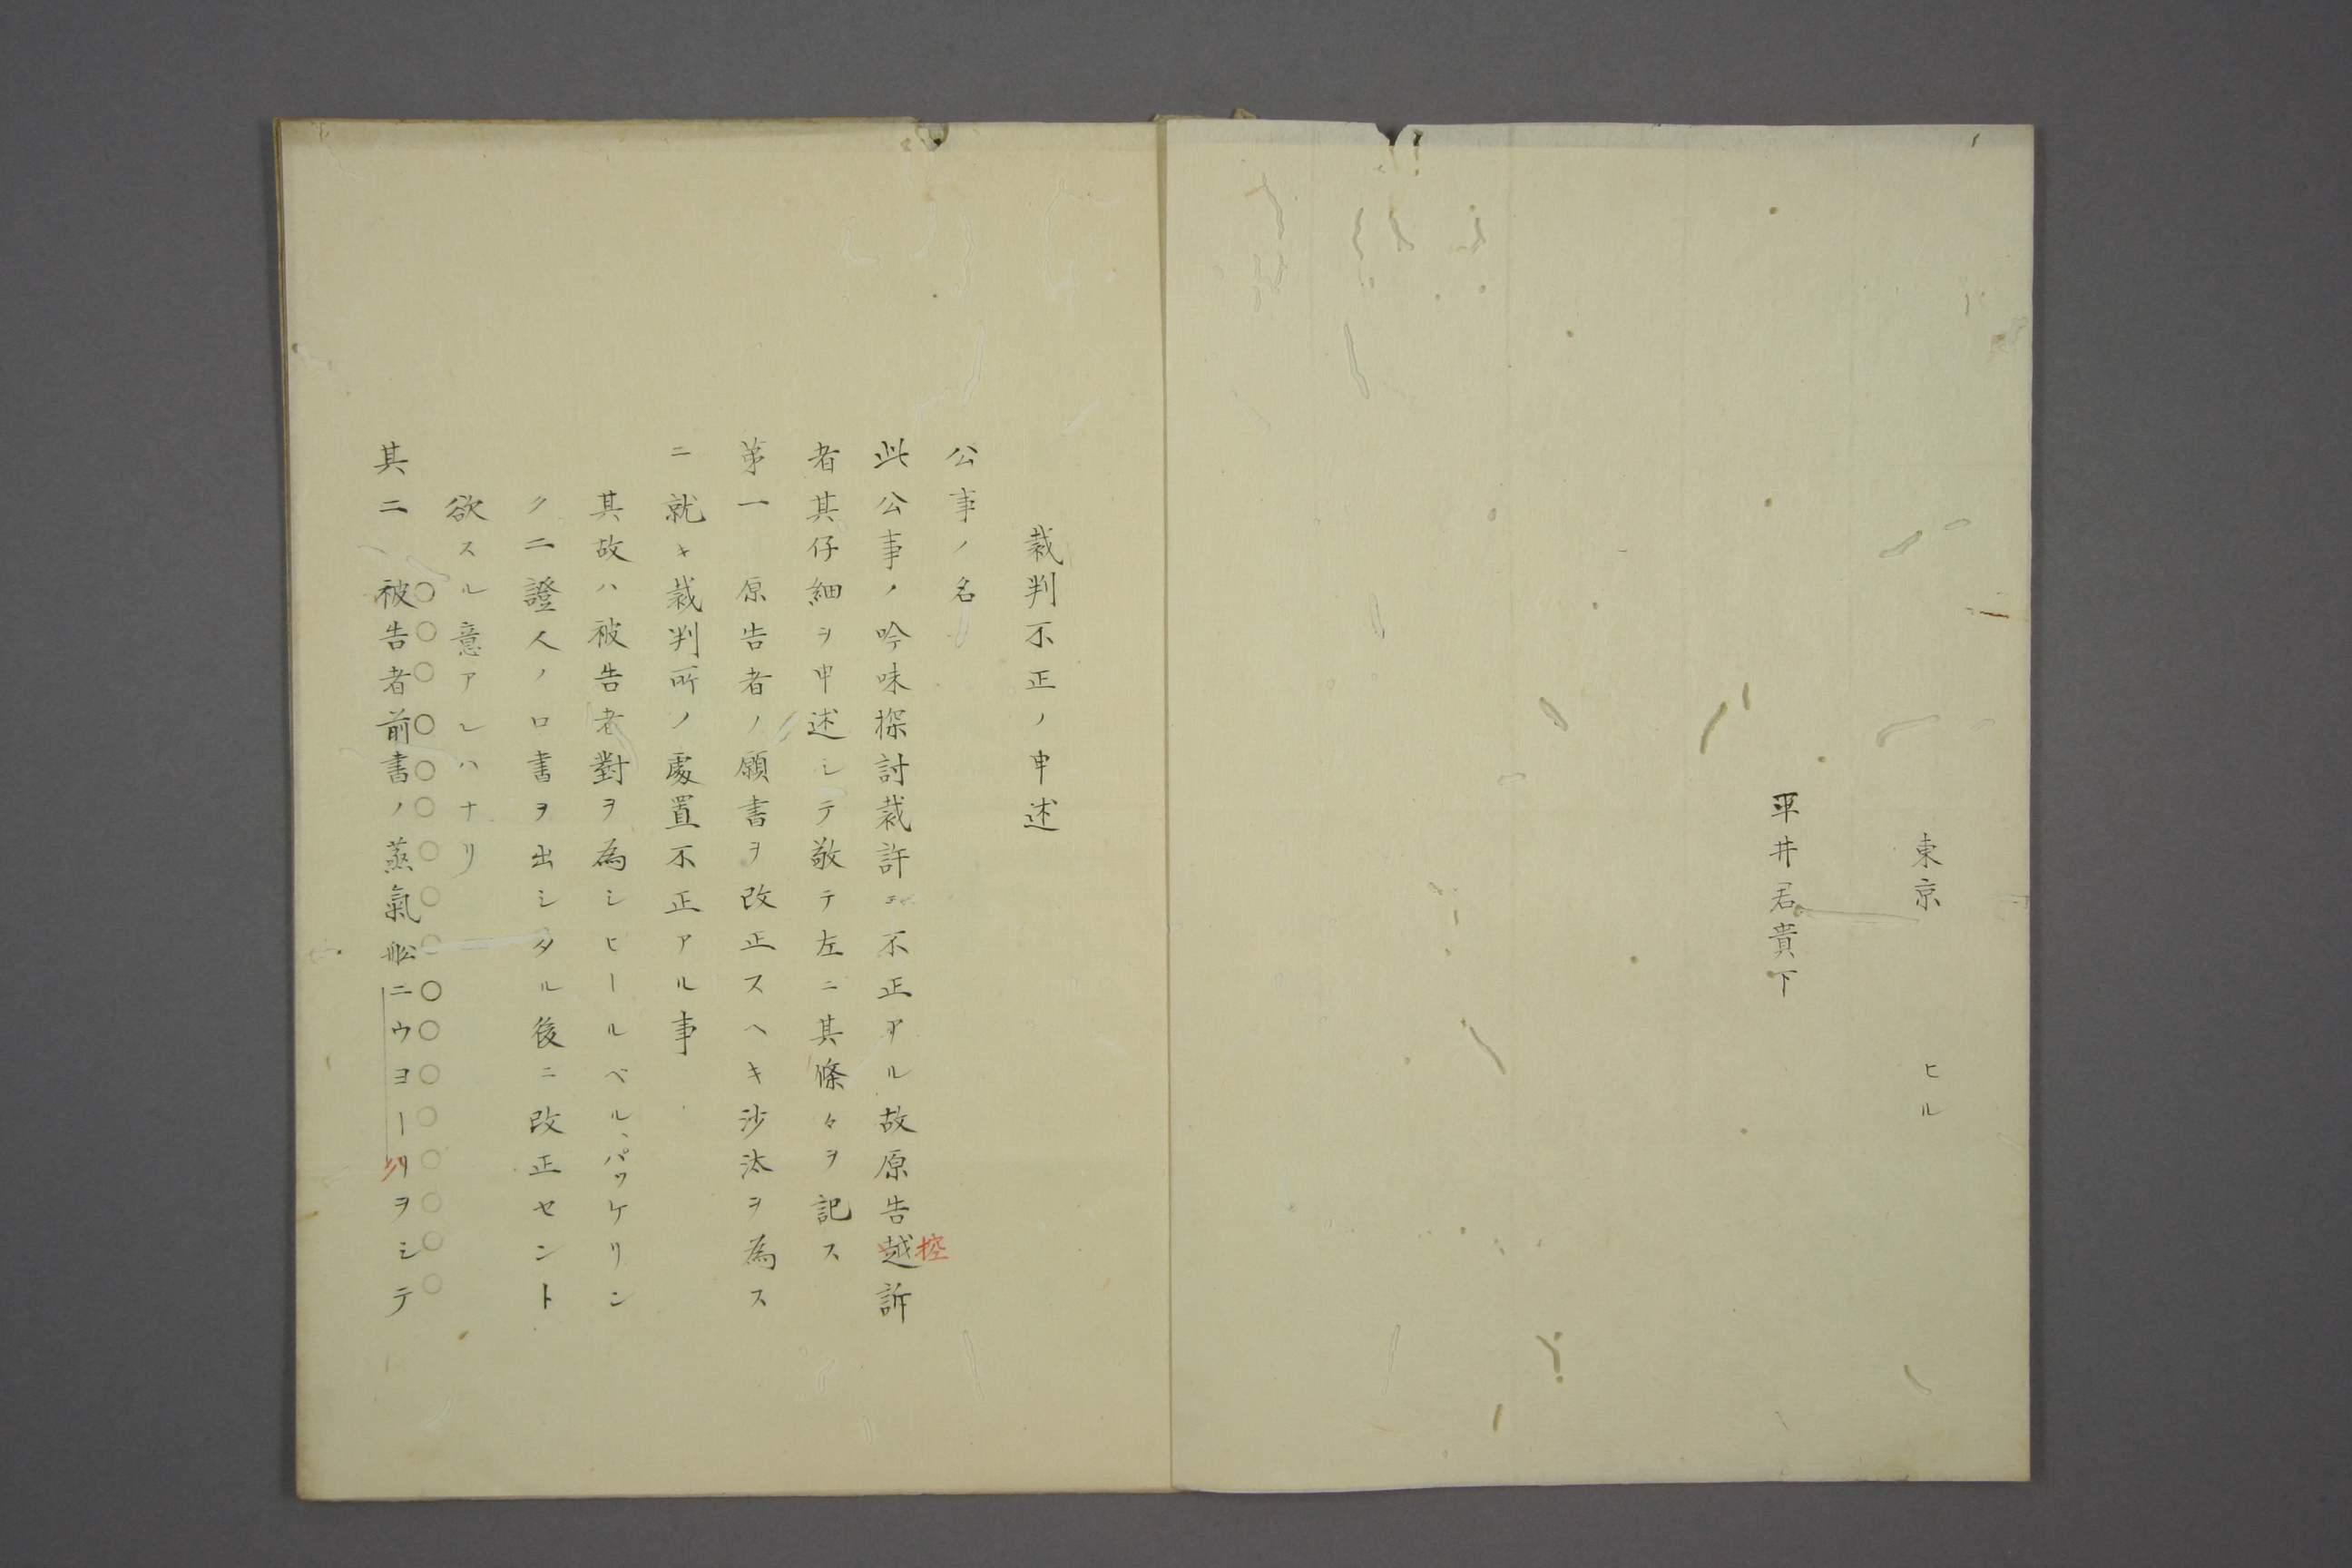 東京　ヒル
平井君貴下
裁判不正ノ申述
公事ノ名
此公事ノ吟味探討裁許不正アル故原告越訴
控
者其仔細ヲ申述シテ敬テ左ニ其條々ヲ記ス
第一　原告者ノ願書ヲ改正スヘキ沙汰ヲ為ス
ニ就キ裁判所ノ處置不正アル事
其故ハ被告者對ヲ為シヒールベル、パッケリン
ク二證人ノ口書ヲ出シタル後ニ改正セント
欲スル意アレハナリ
其二　被告者前書ノ蒸氣舩ニウヨーリヲシテ